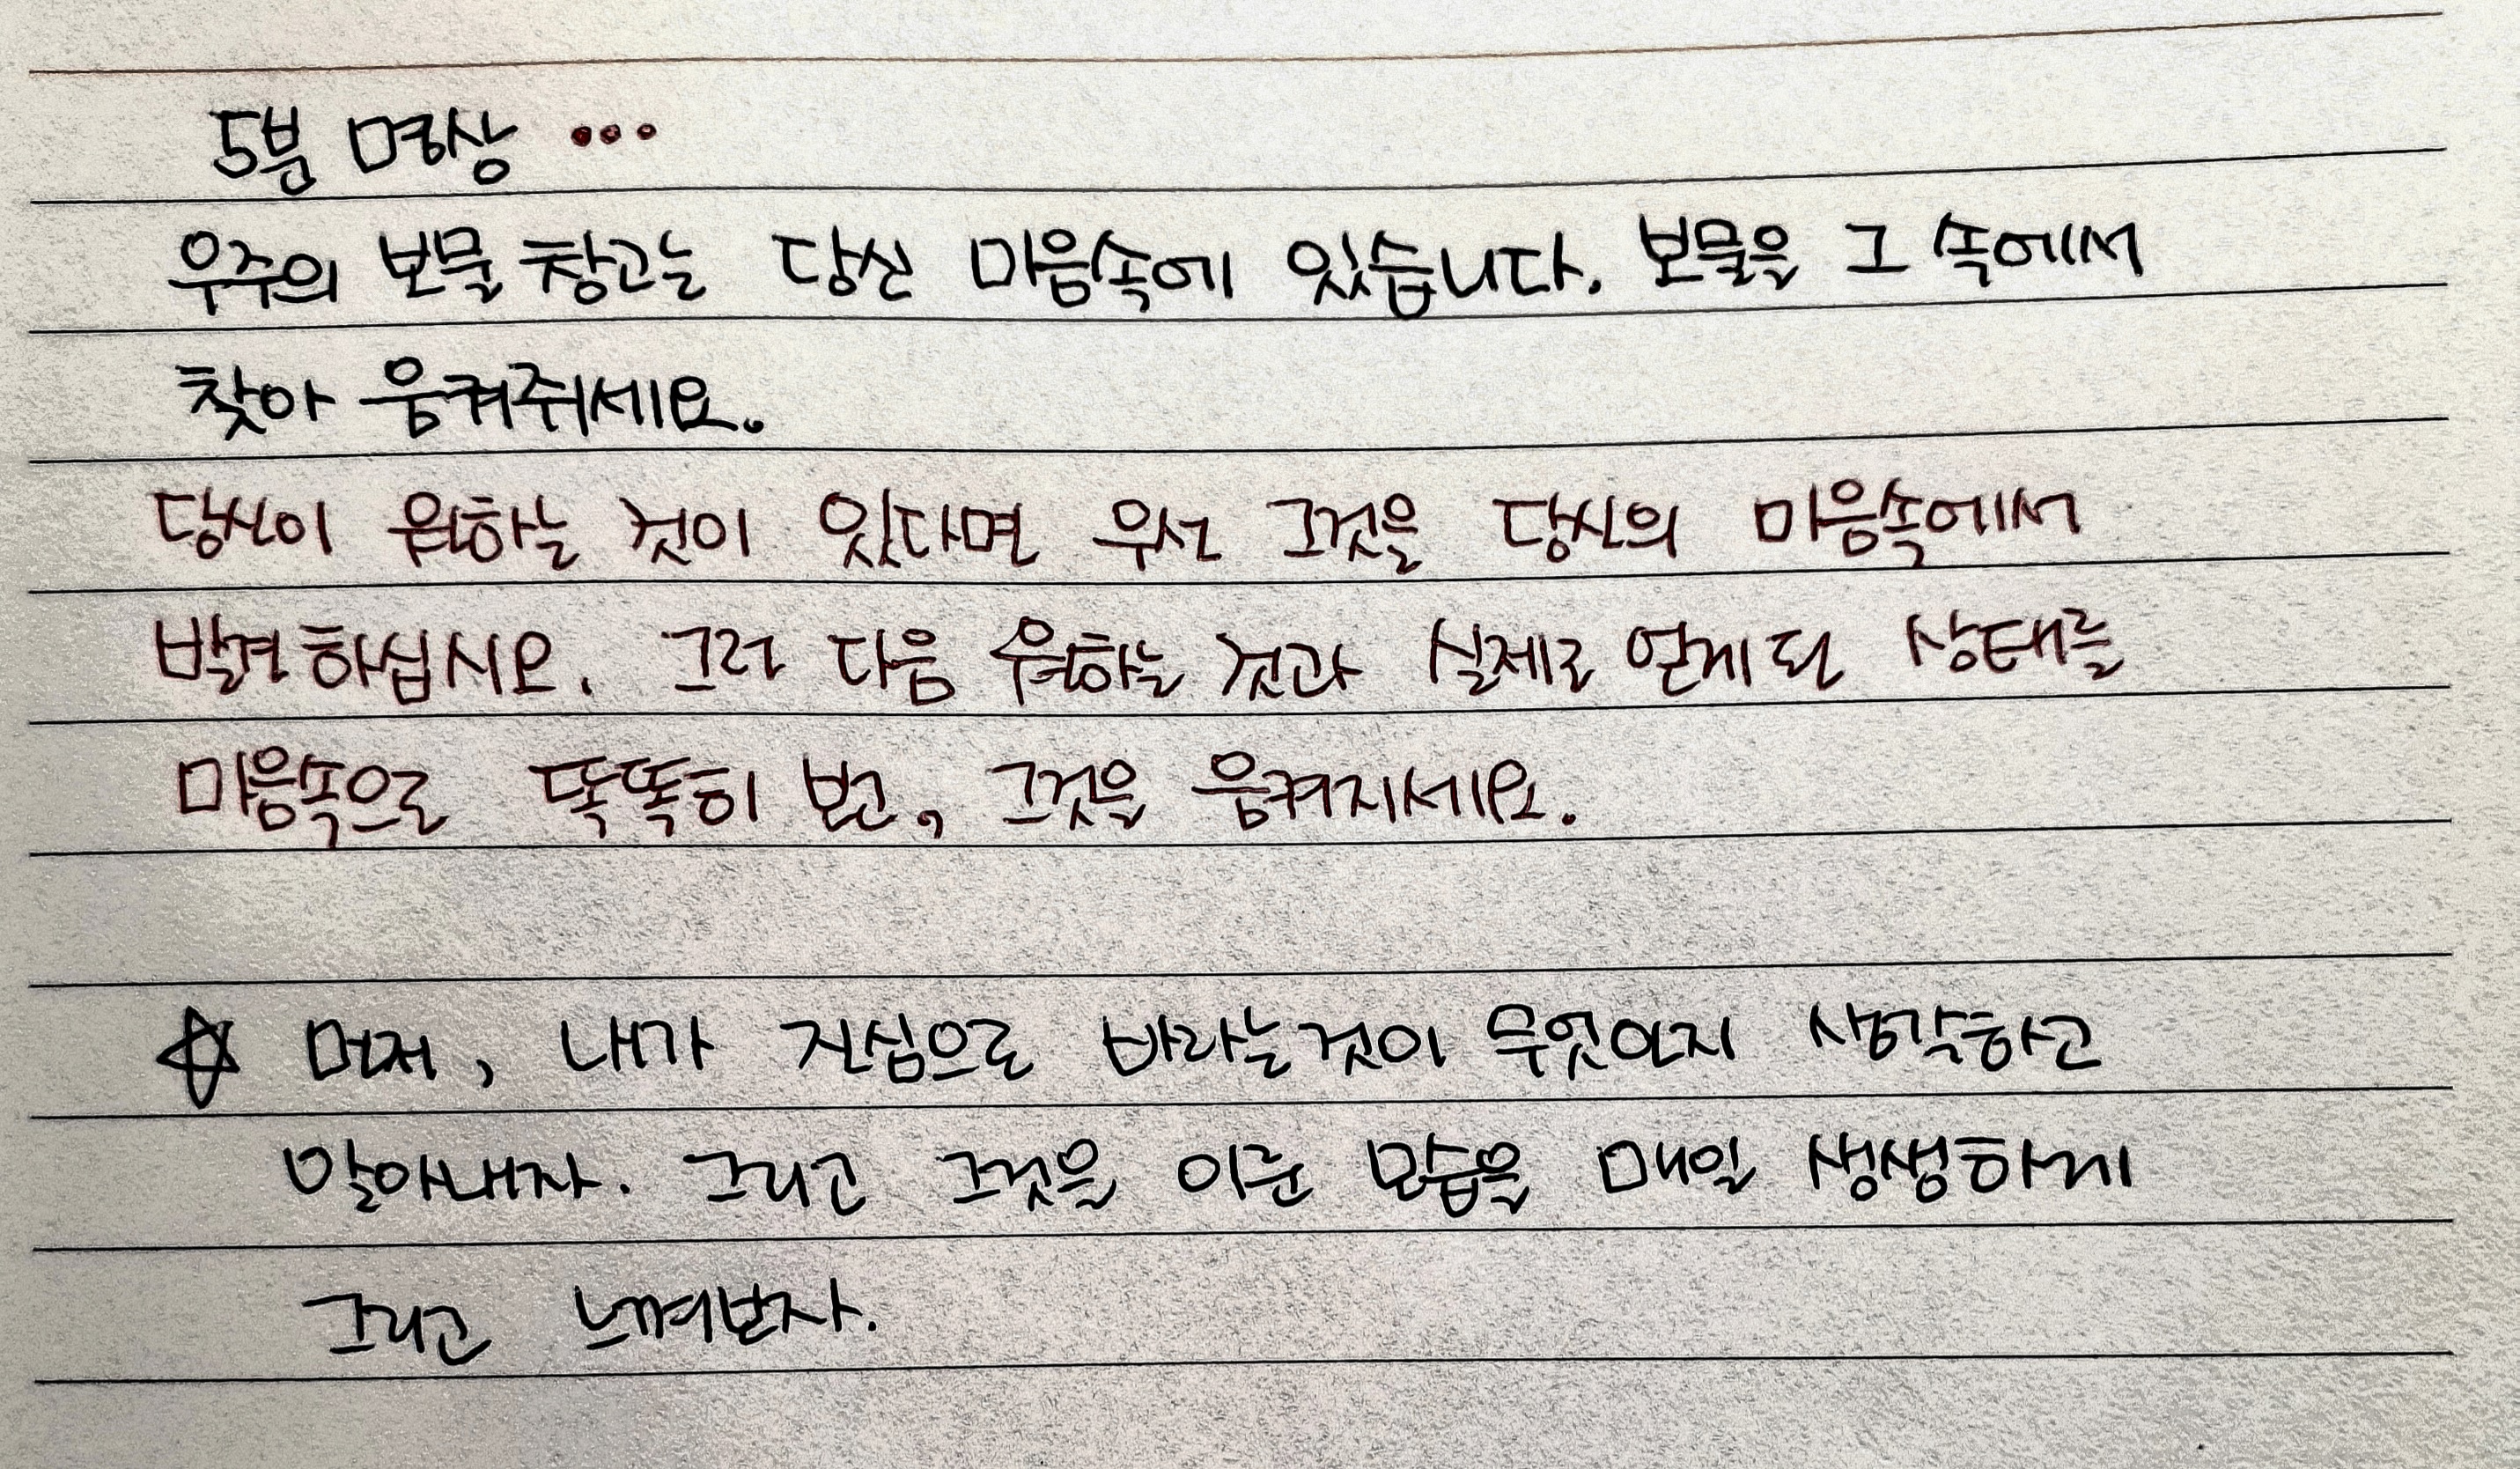 5분 명상 •••
우주의 보물 창고는 당신 마음속에 있습니다. 보물을 그 속에서
찾아 움켜쥐세요.
당신이 원하는 것이 있다면 우선 그것을 당신의 마음속에서
발견하십시오. 그런 다음 원하는 것과 실제로 얻게 된 상태를
마음속으로 똑똑히 본고, 그것을 움켜지세요.
☆ 먼저, 내가 진심으로 바라는것이 무엇인지 생각하고
알아내자. 그리고 그것을 이룬 모습을 매일 생생하게
그리고 느껴본자.